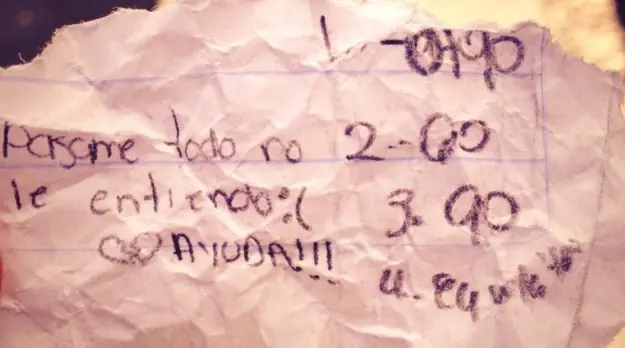 Pasame todo no
le entiendo:(
AYUDA!!!
1.
2-60
3. 90
4.